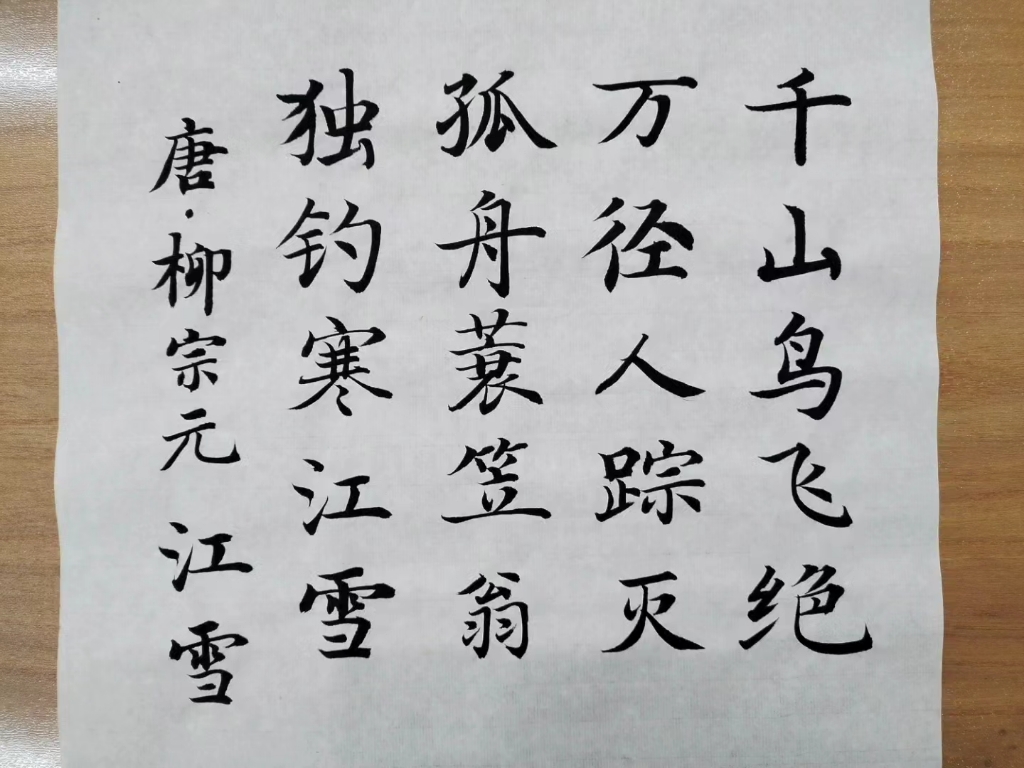 千山鸟飞绝
万径人踪灭
孤舟蓑笠翁
独钓寒江雪
唐·柳宗元 江雪